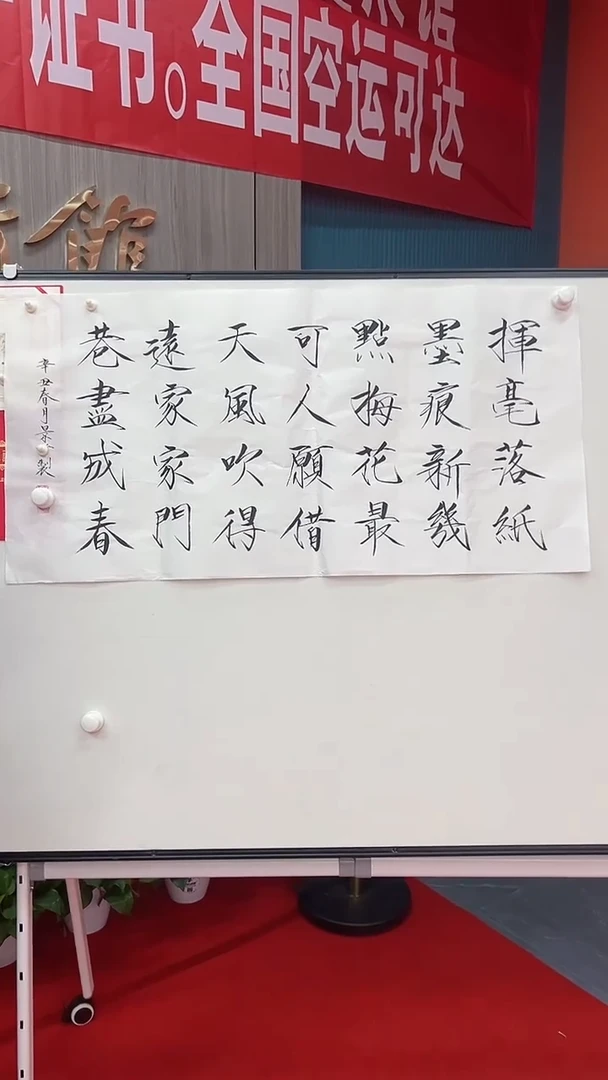 证书。全国空运可达
館
揮毫落紙
墨痕新幾
點梅花最
可人願借
天風吹得
遠家家門
巷盡成春
辛丑春月景製